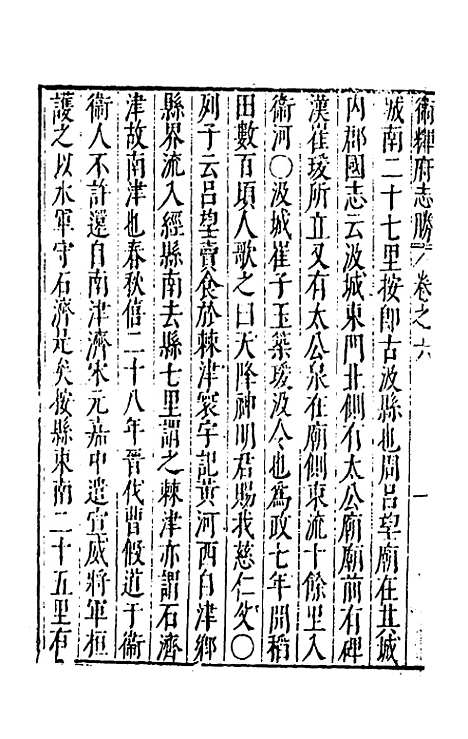 衛輝府志勝　卷之六　一
城南二十七里按即古汲縣也周吕望廟在其城
内郡國志云汲城東門北側有太公廟廟前有碑
漢崔瑗所立又有太公泉在廟側東流十餘里入
衛河〇汲城崔子玉築瑗汲令也爲政七年開稻
田數百頃人歌之曰天降神明君賜我慈仁父〇
列子云吕望賣食於棘津寰宇記黄河西自津鄉
縣界流入經縣南去縣七里謂之棘津亦謂石濟
津故南津也春秋僖二十八年晉伐曹假道于衞
衞人不許還自南津濟宋元嘉中遣宣威將軍桓
護之以水軍守石濟是矣按縣東南二十五里有